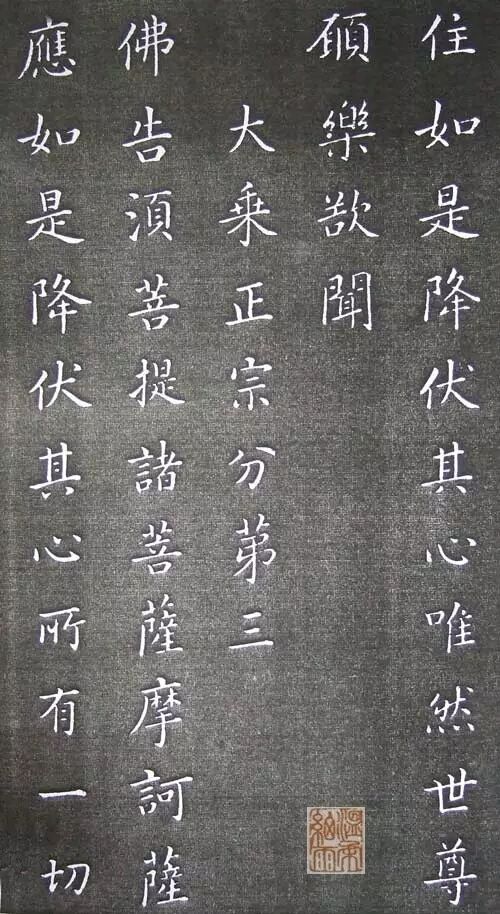 住如是降伏其心唯然世尊
願樂欲聞
大乗正宗分苐三
佛告湏菩提諸菩薩摩訶薩
應如是降伏其心所有一切